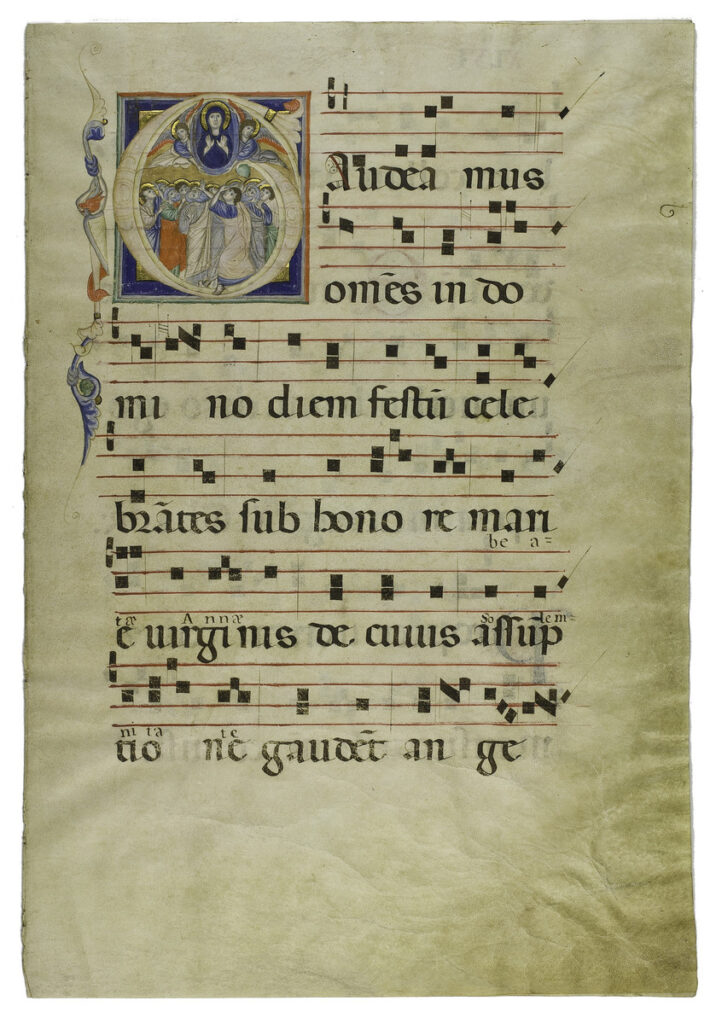 GAudeā mus
om̄es in do
mi no diem festū cele
brātes sub hono re mari
be a=
tæ Annæ So lem=
e uirginis de cuius assūp
ni ta te
tio nē gaudēt an ge